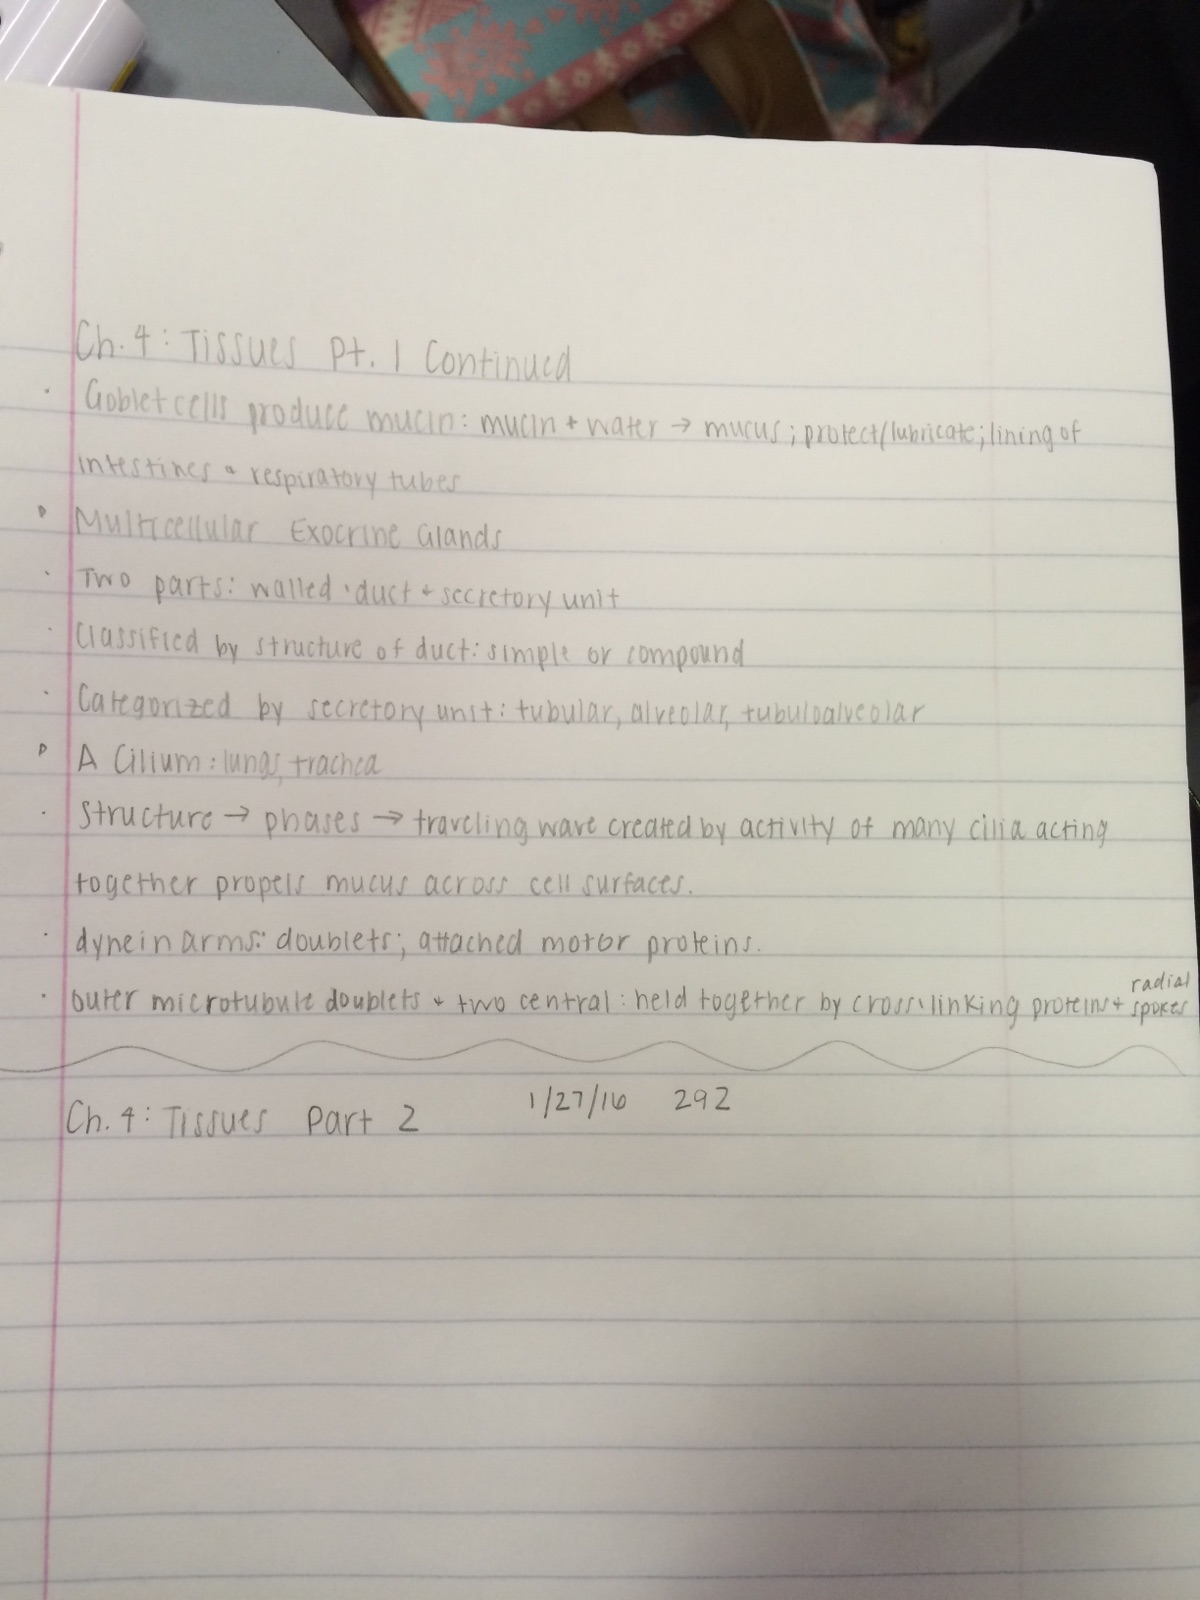 Ch. 4: Tissues Pt. 1 Continued
· Goblet cells produce mucin: mucin + water → mucus; protect/lubricate; lining of
intestines + respiratory tubes
▹ Multicellular Exocrine Glands
· Two parts: walled · duct + secretory unit
· Classified by structure of duct: simple or compound
· Categorized by secretory unit: tubular, alveolar, tubuloalveolar
▹ A Cilium: lungs, trachea
· Structure → phases → traveling wave created by activity of many cilia acting
together propels mucus across cell surfaces.
· dynein arms: doublets; attached motor proteins.
· outer microtubule doublets + two central: held together by cross-linking proteins + radial spokes
Ch. 4: Tissues Part 2 1/27/16 292